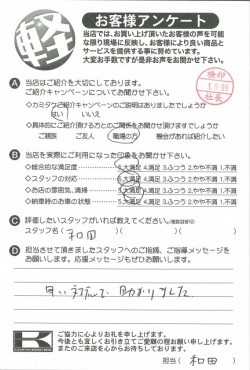 軽
お客様アンケート
当店では、お買い上げ頂いたお客様の声を可能
な限り現場に反映し、お客様により良い商品と
サービスを提供する事に努めています。
大変お手数ですが是非お声をお聞かせ下さい。
検印
社長
A 当店はご紹介を大切にしております。
ご紹介キャンペーンについてお聞かせ下さい。
◇カミタケご紹介キャンペーンのご説明はありましたでしょうか
はい いいえ
◇具体的にご紹介頂ける方とのご関係をお聞かせ頂けますでしょうか
ご親族 ご友人 職場の方 機会があれば紹介したい
B 当店を実際にご利用になった印象をお聞かせ下さい。
◇総合的な満足度 5.大満足 4.満足 3.ふつう 2.やや不満 1.不満
◇スタッフの対応 5.大満足 4.満足 3.ふつう 2.やや不満 1.不満
◇お店の雰囲気、清掃 5.大満足 4.満足 3.ふつう 2.やや不満 1.不満
◇納車時のお車の状態 5.大満足 4.満足 3.ふつう 2.やや不満 1.不満
C 評価したいスタッフがいれば教えてください。(複数回答可)
スタッフ名( 和田 )
D 担当させて頂きましたスタッフへのご指導、ご指導メッセージを
お願いします。応援メッセージもぜひお願いします。
早い対応で 助かりました
K
ご協力に心よりお礼を申し上げます。
今後とも宜しくお引き立てご愛顧の程お願い申し上げます。
またのご来店を心からお待ちしております。
担当( 和田 )